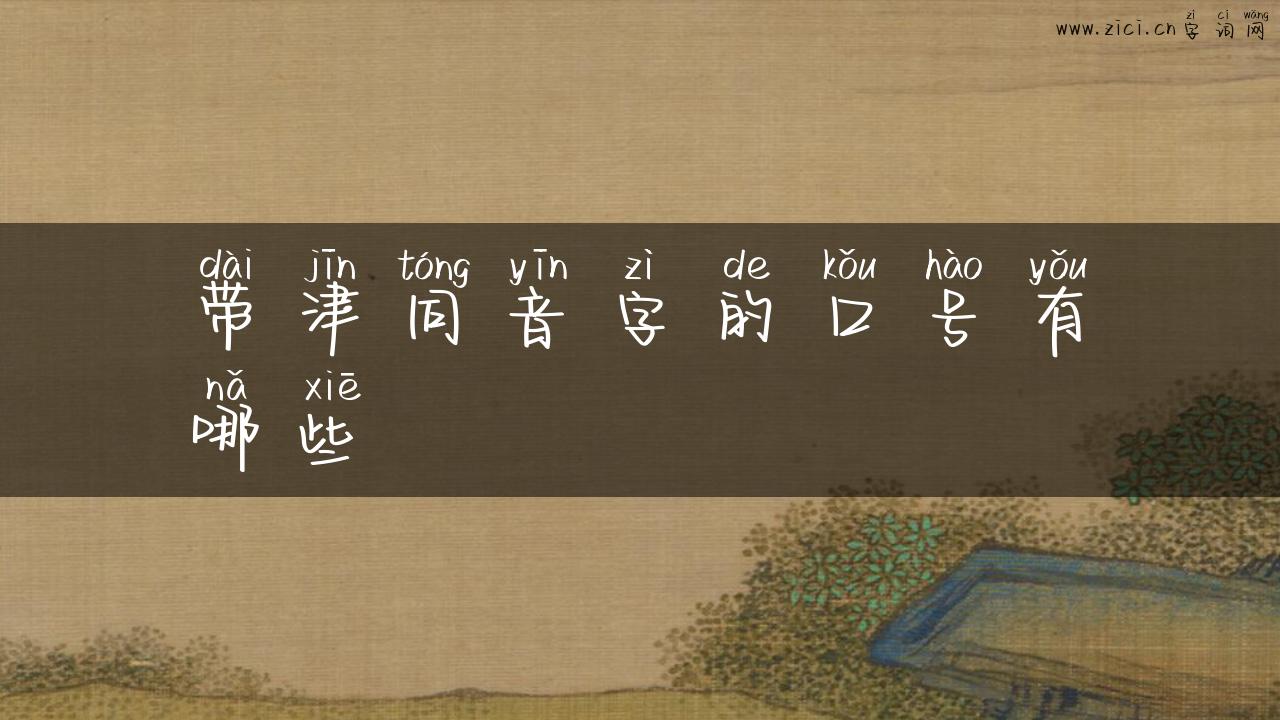 zì cí wǎng
www.zici.cn 字 词 网
dài jīn tóng yīn zì de kǒu hào yǒu
带 津 同 音 字 的 口 号 有
nǎ xiē
哪 些